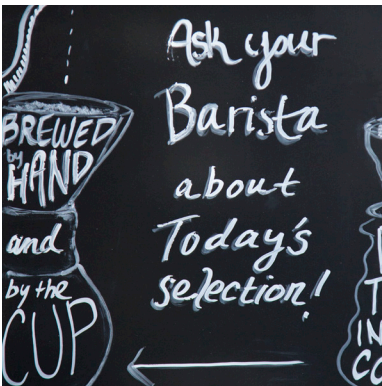 BREWED
by
HAND
and
by the
CUP
Ask your
Barista
about
Today's
selection!
IN